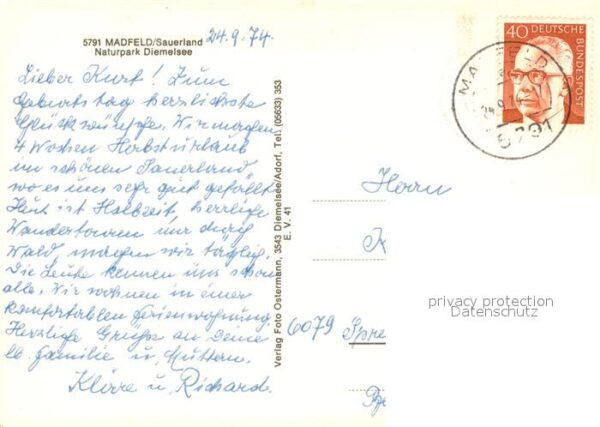 5791 MADFELD/Sauerland
Naturpark Diemelsee
24.9.74.
Lieber Kurt! Zum
Geburtstag herzlichste
Glückwünsche. Wir machen
4 Wochen Herbsturlaub
im schönen Sauerland,
wo es uns sehr gut gefällt.
Heut ist Halbzeit, herrliche
Wandertouren nur durch
Wald, machen wir täglich.
Die Leute kennen uns schon
alle. Wir wohnen in einer
komfortablen Ferienwohnung.
Herzliche Grüße an Deine
lb. Familie u. Muttern.
Kläre u. Richard.
Verlag Foto Ostermann, 3543 Diemelsee/Adorf, Tel. (05633) 353
E. V. 41
40 DEUTSCHE
BUNDESPOST
5791
Herrn
privacy protection
Datenschutz
6079 Spre